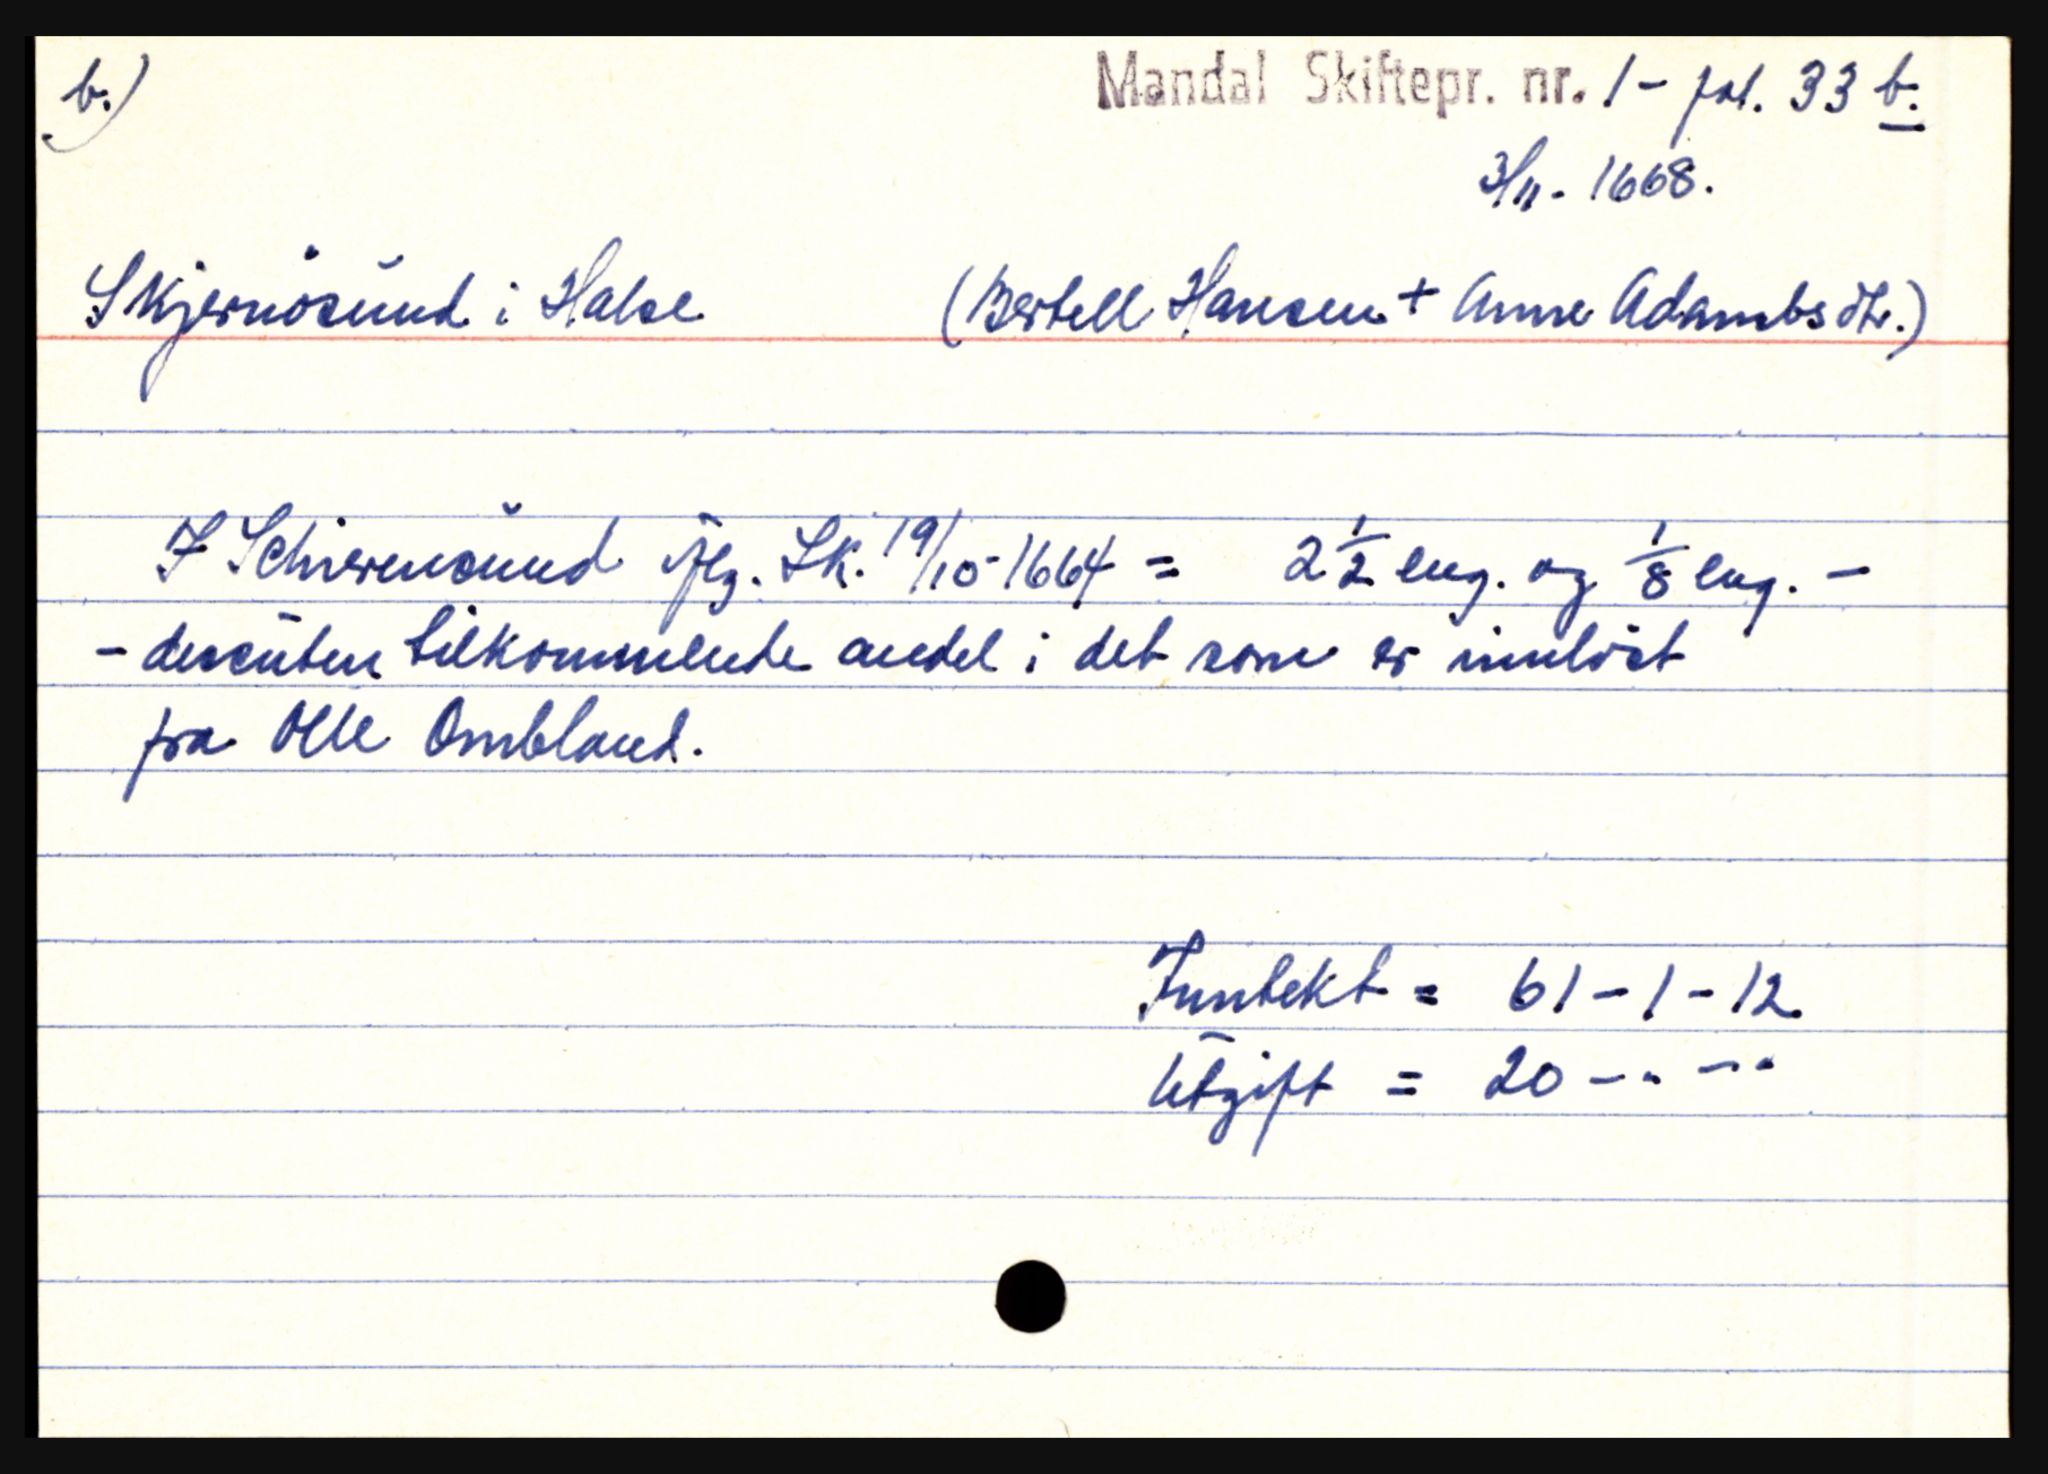 b.)
Mandal Skiftepr. nr. 1 - fol. 33 b.
3/11 - 1668.
Skjernösund i Halse (Bertell Hansen + Anne Adambsdtr.)
I Schierensund iflg. Sk. 19/10-1664 = 2 1/2 eng. og 1/8 eng. -
- dessuten tilkommende andel i det som er innløst
fra Olle Ombland.
Inntekt = 61 - 1 - 12
Utgift = 20 - .. - ..